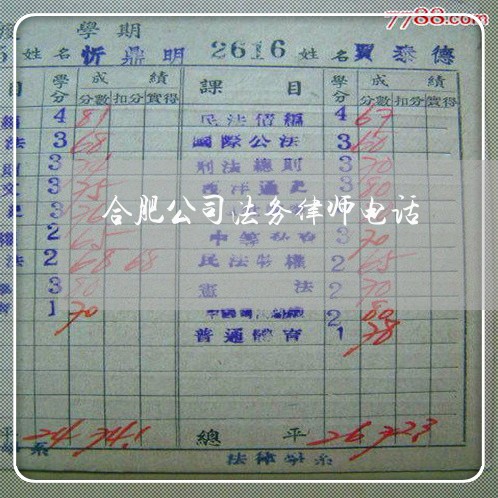 7788.com
度 學期
5 姓名 忻鼎明 2616 姓名 賈泰德
目 學分 成績 分數 扣分 實得 課目 學分 成績 分數 扣分 實得
4 81 民法債編 4 67
法 3 68 國際公法 3 60
3 刑法總則 3 70
文 3 75 西洋通史 3 80
史 3
合肥公司法务律师电话
權 2 65 3 70
法 2 68 68 民法物權 2 65
3 80 憲法 2 70
育 1 70 2 80
普通體育 1 78
平 24 74.1 總平 26 72.3
系 法律學系